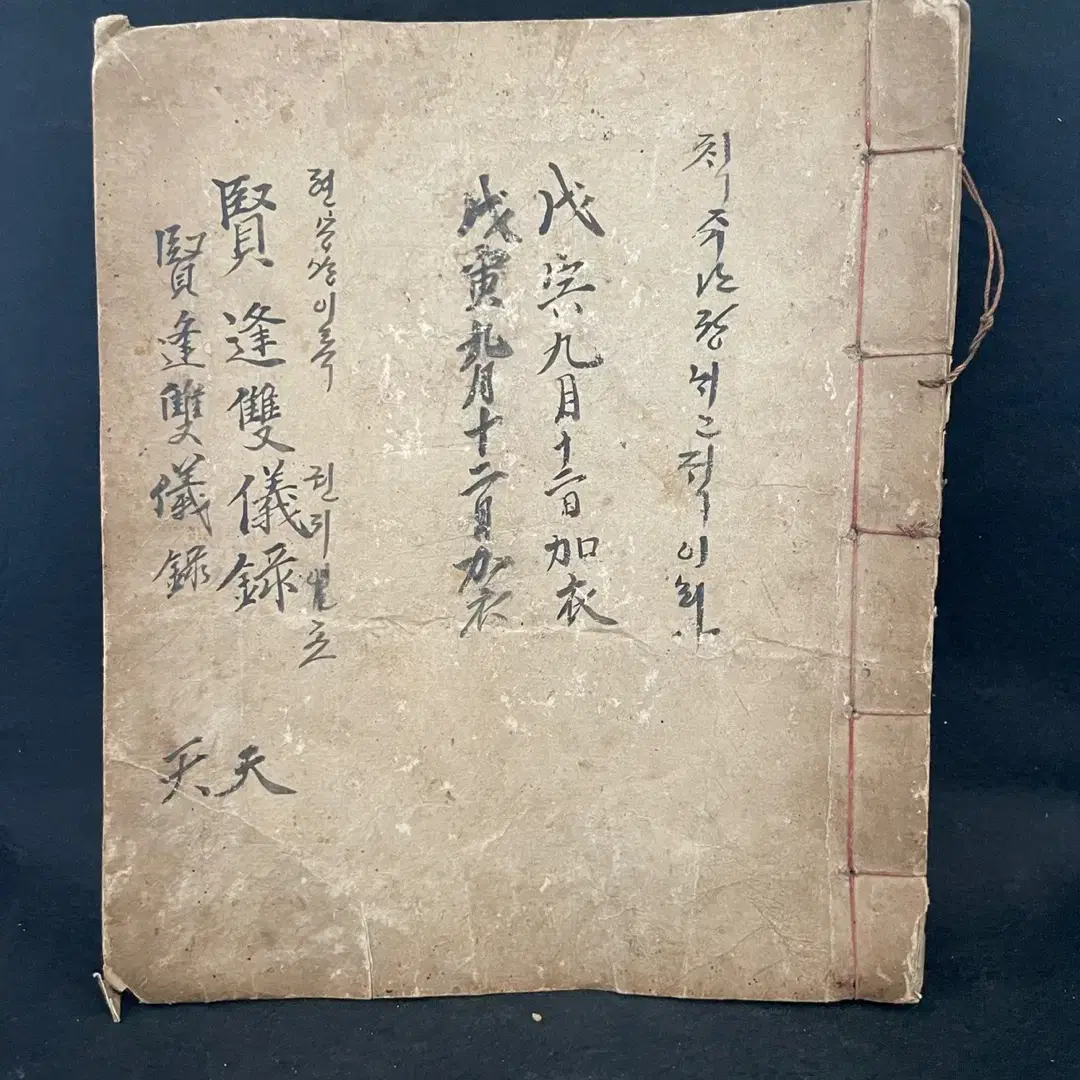 칙주 이라
戊寅九月十二日加衣
戊寅九月十二日加衣
현봉쌍이록 권지일
賢逢雙儀錄 天
賢逢雙儀錄 天